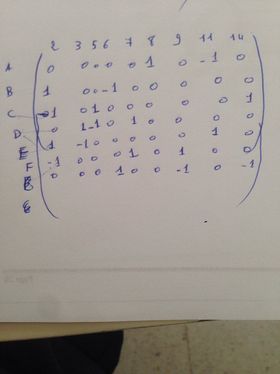 2 3 5 6 7 8 9 11 14
A 0 0 0 0 0 1 0 -1 0
B 1 0 0 -1 0 0 0 0 0
C -1 0 1 0 0 0 0 0 1
D 0 1 -1 0 1 0 0 0 0
E 1 -1 0 0 0 0 0 1 0
F -1 0 0 0 1 0 1 0 0
0 0 0 1 0 0 -1 0 -1